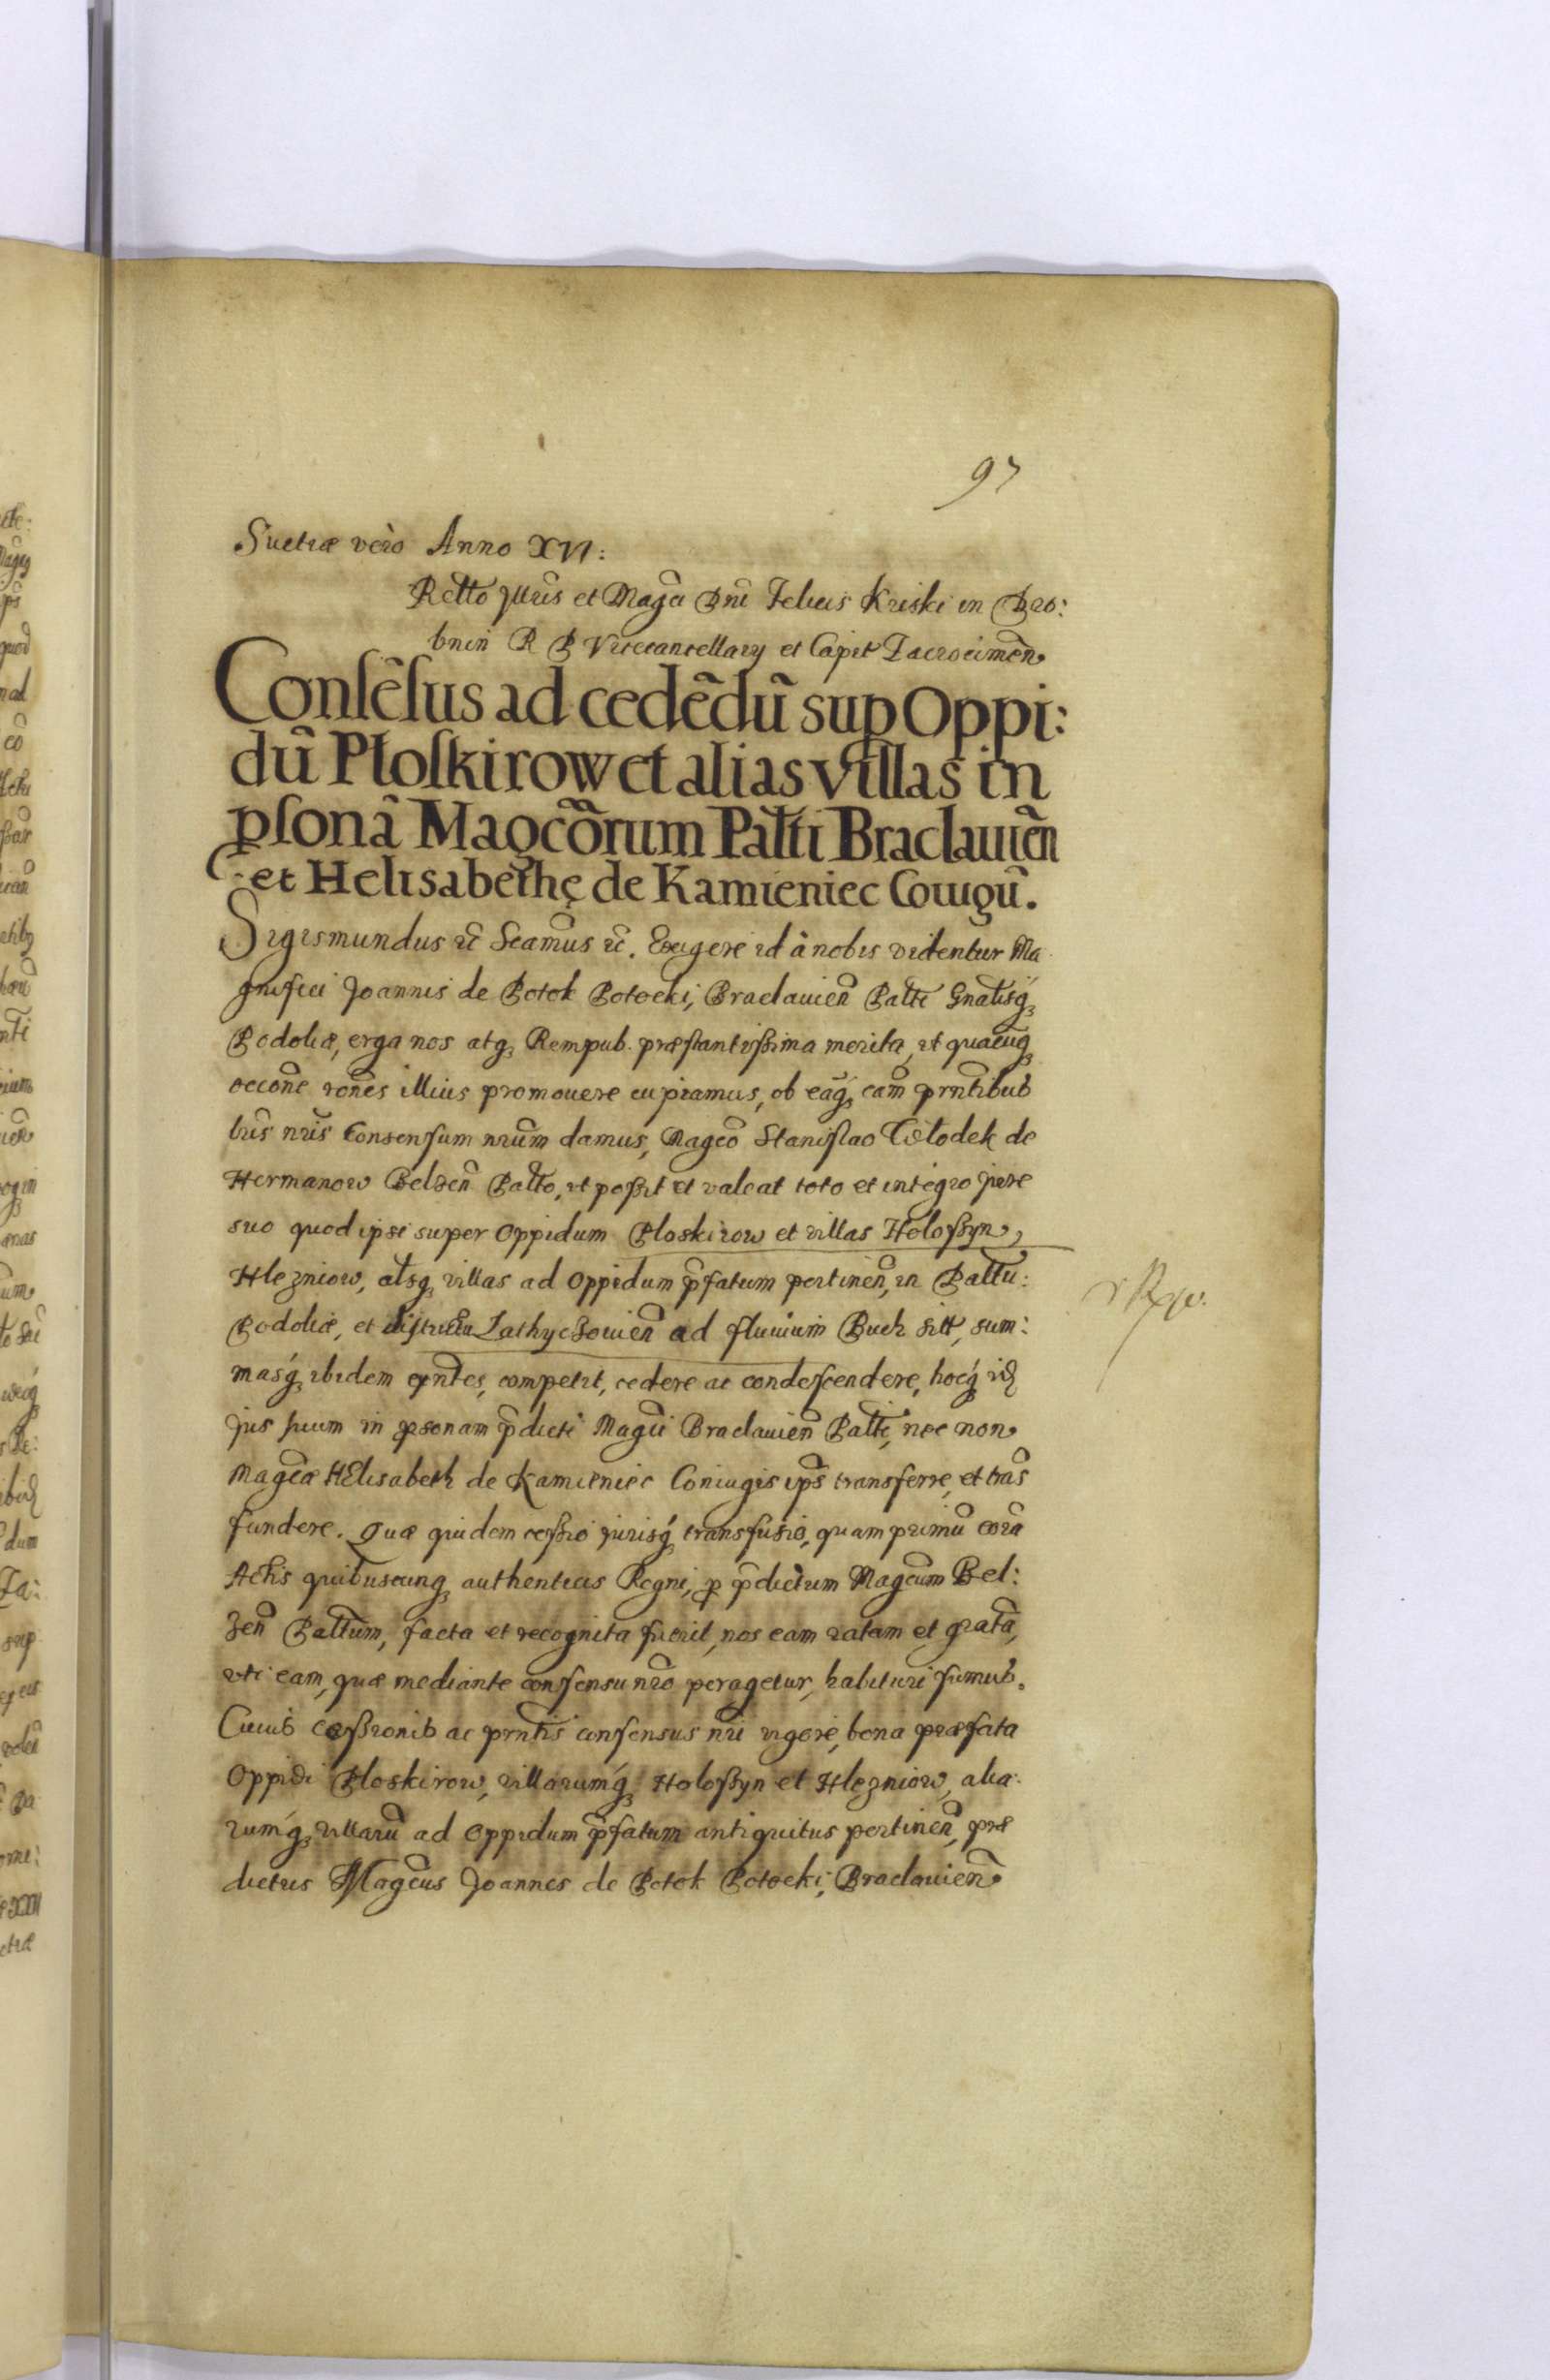 97
Suetiæ vèro Anno XVI:
Rclto Jllris et Magci Dni Felicis Kriski in Dro:
bnin R P Vicecancellarij et Capit Zacrocimeñ
Consẽsus ad cedẽdũ sup Oppi:
dũ Płoskirow et alias villas in
psonã Magcõrum Palti Braclauiẽn
et Helisabethę de Kamieniec Coiugũ.
Sigismundus zc̃ Seamus zc̃. Exigere id à nobis videntur Ma
gnifici Joannis de Potok Potocki, Braclauień Palti Gnalisq̃
Podoliæ, erga nos atq̃ Rempub. præstantissima merita, vt quacuq̃
occone rones illius promouere cupiamus, ob eaq̃, cam prntibus
lris nris Consensum nrum damus, Magco Stanislao Włodek de
Hermanow Belzeñ Palto, vt possit et valeat toto et integro jure
suo quod ipsi super Oppidum Ploskirow et villas Holossyn,
Hlezniow, alsq̃ villas ad Oppidum pfatum pertineñ, in Paltu:
Podoliæ, et districtu Lathyczouień ad fluuium Buch sitt, sum:
masq̃ ibidem exntes, competit, cedere ac condescendere, hocq̃
jus suum in psonam pdicti Magci Braclauień Palti, nec non
Magcæ HElisabeth de Kamieniec Coniugis ips transferre, et tras
fundere. Quæ quidem cessio jurisq̃ transfusio, quamprimũ corã
Actis quibuscunq̃ authenticis Regni, p pdictum Magcum Bel:
zeñ Paltum, facta et recognita fuerit, nos eam ratam et gratã,
vti eam, quæ mediante consensu nro peragetur, habituri sumus.
Cuius cessionis ac prntis consensus nri vigore, bona præfata
Oppidi Ploskirow, villarumq̃ Holossyn et Hlezniow, alia:
rumq̃ villarũ ad Oppidum pfatum antiquitus pertineñ, præ
dictus Magcus Joannes de Potok Potocki, Braclauień